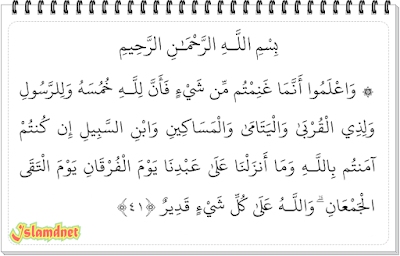 بِسْمِ اللَّـهِ الرَّحْمَـٰنِ الرَّحِيمِ
۞ وَاعْلَمُوا أَنَّمَا غَنِمْتُم مِّن شَيْءٍ فَأَنَّ لِلَّـهِ خُمُسَهُ وَلِلرَّسُولِ
وَلِذِي الْقُرْبَىٰ وَالْيَتَامَىٰ وَالْمَسَاكِينِ وَابْنِ السَّبِيلِ إِن كُنتُمْ
آمَنتُم بِاللَّـهِ وَمَا أَنزَلْنَا عَلَىٰ عَبْدِنَا يَوْمَ الْفُرْقَانِ يَوْمَ الْتَقَى
الْجَمْعَانِ ۗ وَاللَّـهُ عَلَىٰ كُلِّ شَيْءٍ قَدِيرٌ ﴿٤١﴾
Islamdnet